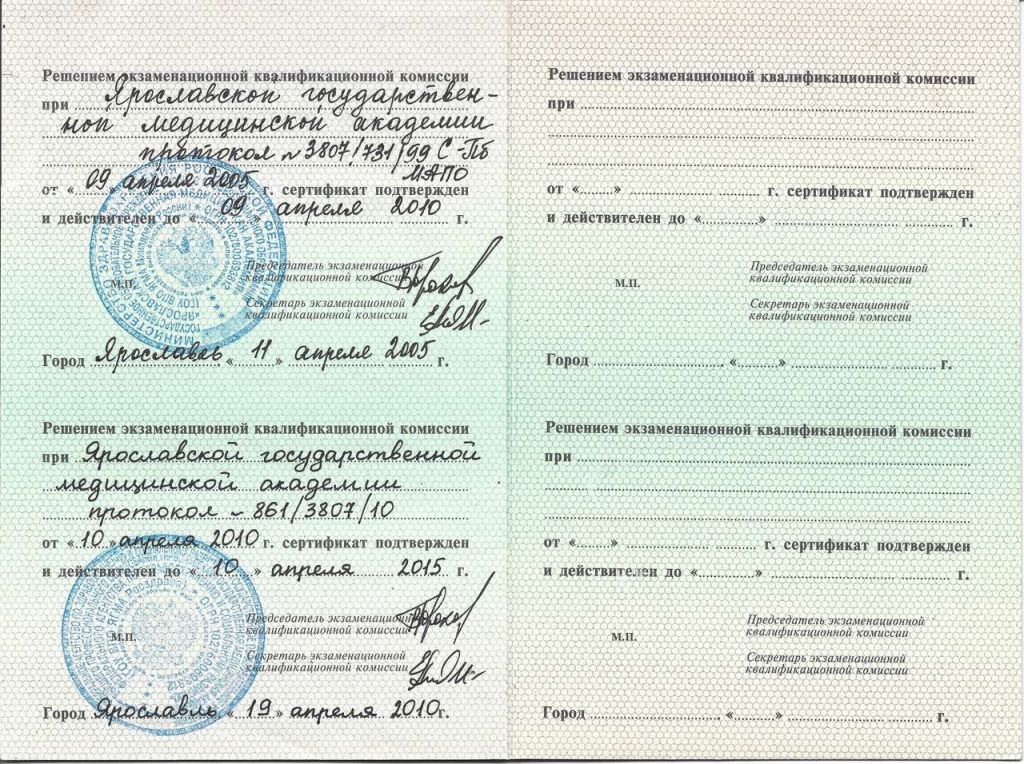 Решением экзаменационной квалификационной комиссии
при Ярославской государствен-
ной медицинской академии
протокол № 3807/731/99 С-Пб
МАПО
от «09» апреля 2005 г. сертификат подтвержден
и действителен до «09» апреля 2010 г.
Председатель экзаменационной
квалификационной комиссии
М.П.
Секретарь экзаменационной
квалификационной комиссии
Город Ярославль «11» апреля 2005 г.
Решением экзаменационной квалификационной комиссии
при Ярославской государственной
медицинской академии
протокол ~ 861/3807/10
от «10» апреля 2010 г. сертификат подтвержден
и действителен до «10» апреля 2015 г.
Председатель экзаменационной
квалификационной комиссии
М.П.
Секретарь экзаменационной
квалификационной комиссии
Город Ярославль «19» апреля 2010 г.
Решением экзаменационной квалификационной комиссии
при
от «......» г. сертификат подтвержден
и действителен до «..........» г.
Председатель экзаменационной
квалификационной комиссии
М.П.
Секретарь экзаменационной
квалификационной комиссии
Город «.........» г.
Решением экзаменационной квалификационной комиссии
при
от «......» г. сертификат подтвержден
и действителен до «..........» г.
Председатель экзаменационной
квалификационной комиссии
М.П.
Секретарь экзаменационной
квалификационной комиссии
Город «.........» г.